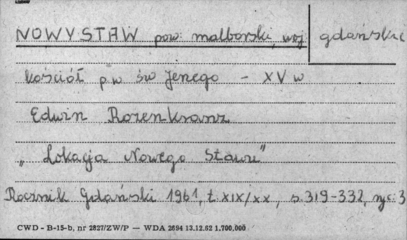 NOWYSTAW pow. malborski, woj gdańskie
kościół p.w św Jenego - XV w
Edwin Rozenkranz
"Lokacja Nowego Stawu"
Rocznik Gdański 1961, t. XIX/XX, s. 319-332, ryc. 3
CWD - B-15-b, nr 2827/ZW/P — WDA 2694 13.12.62 1.700.000